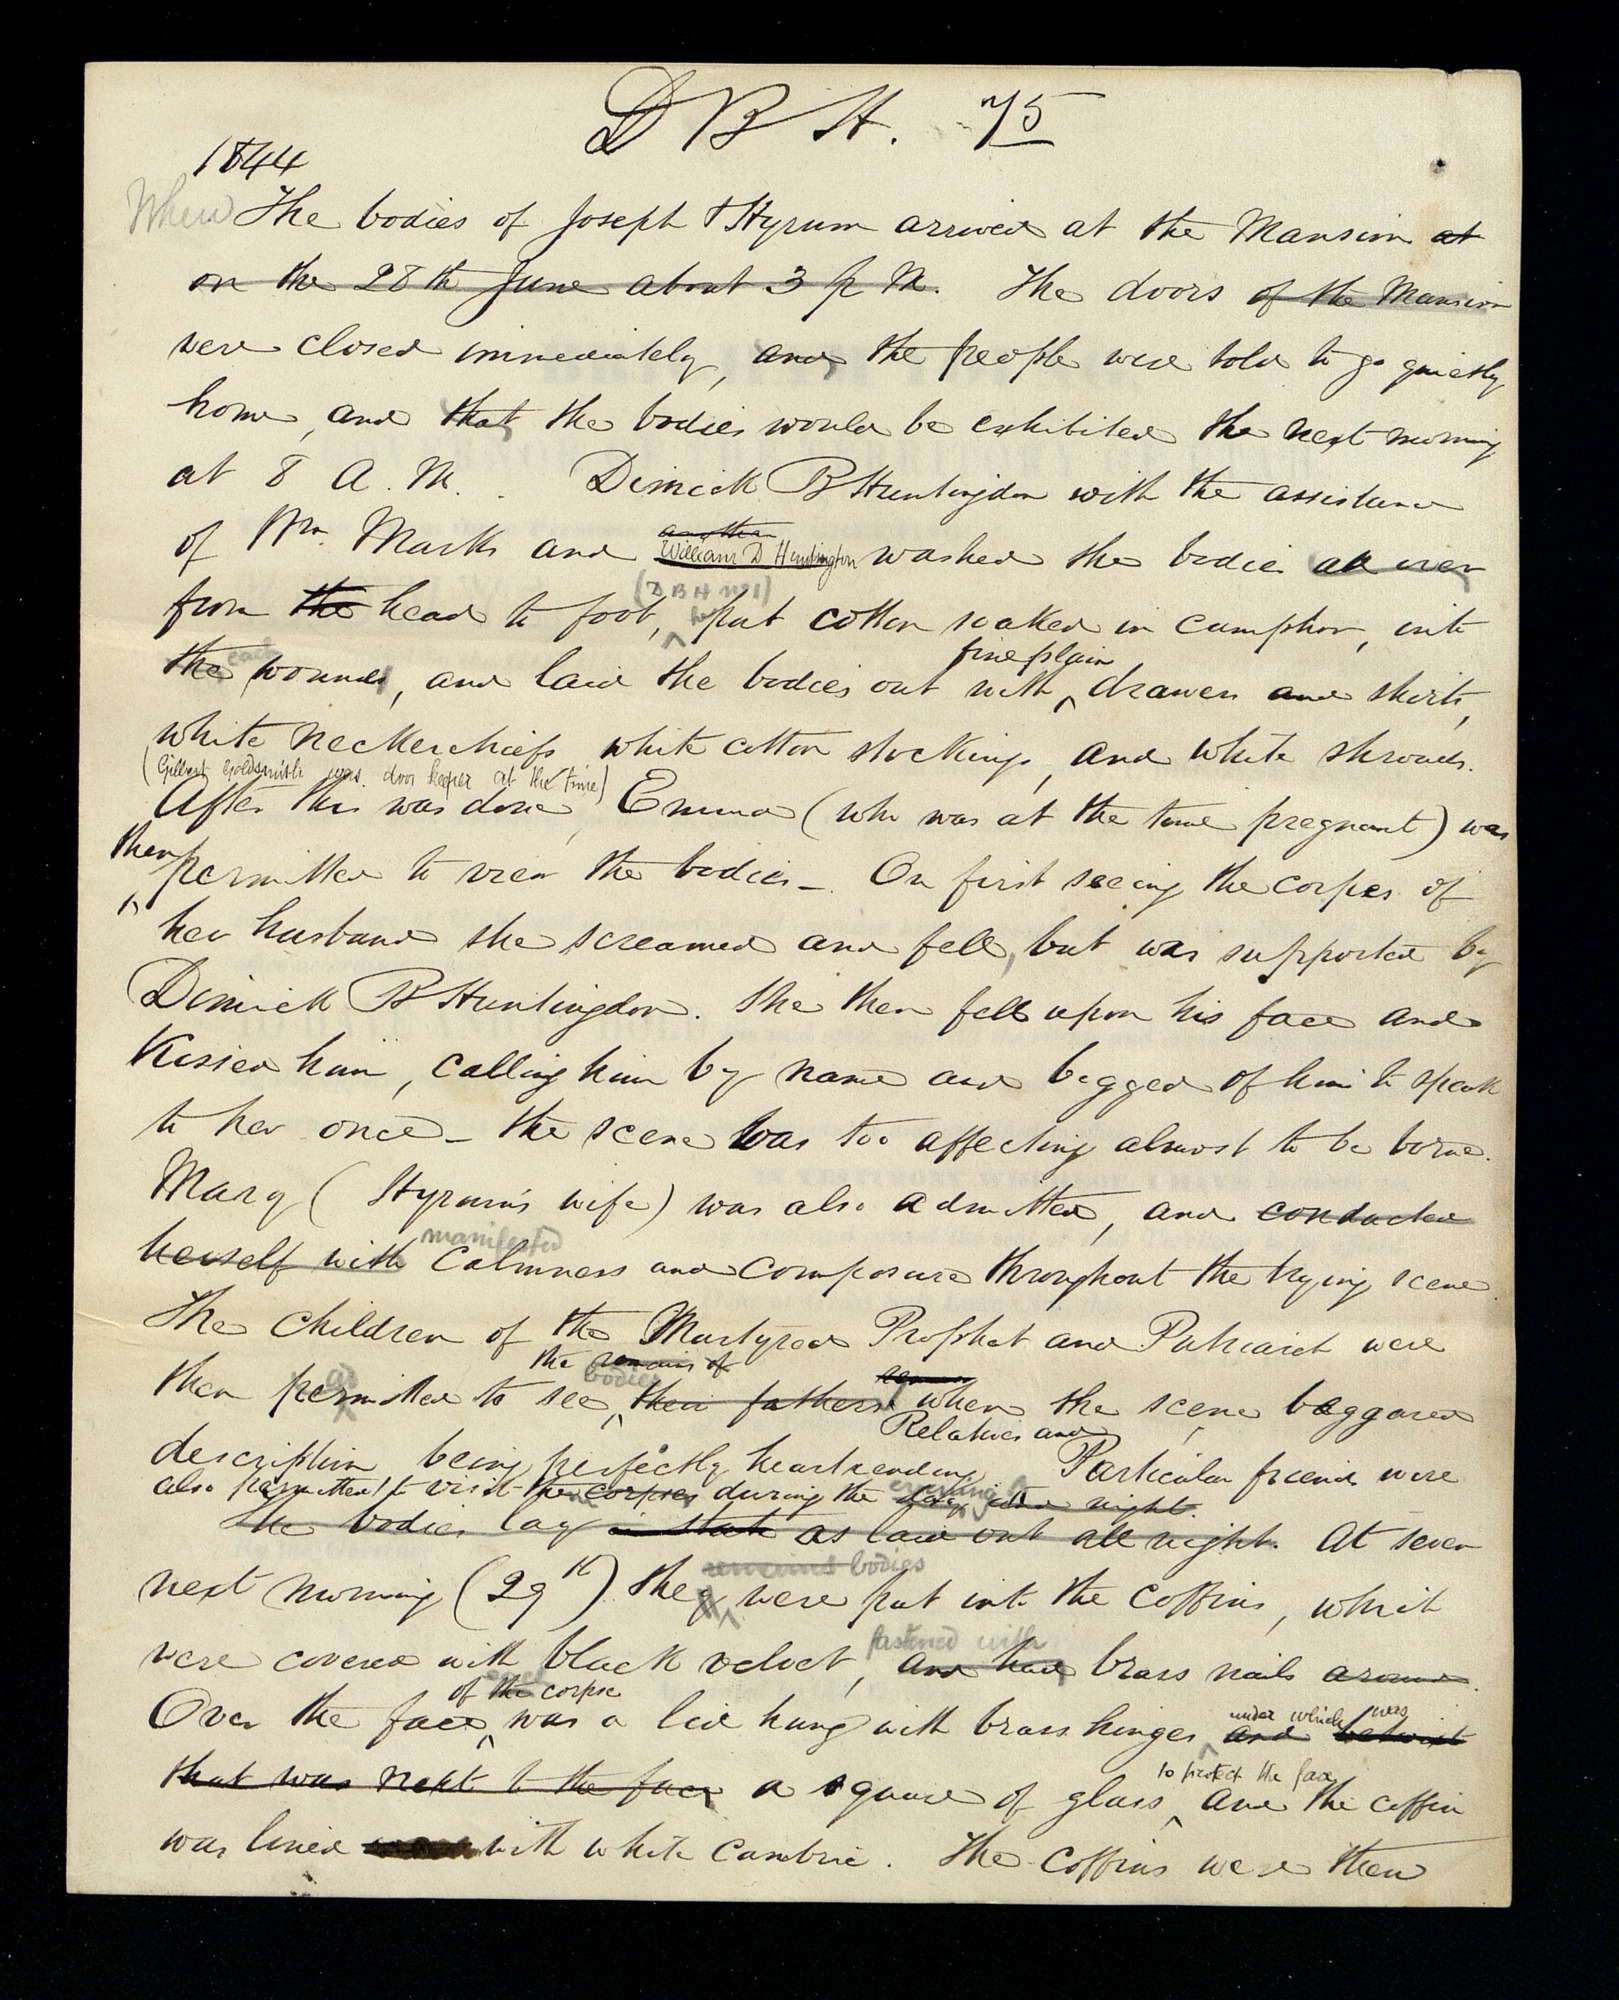 D B H. 75
1844
When The bodies of Joseph & Hyrum arrived at the Mansion at
on the 28th June about 3 p M. The doors of the Mansion
were closed immediately, and the people were told to go quietly
home, and that the bodies would be exhibited the next morning
at 8 A. M. Dimick B Huntingdon with the assistance
another
of Wm. Marks and William D Huntington washed the bodies all over
(D B H No 1)
from the head to foot, put cotton soaked in camphor, into
each fine plain
the wounds, and laid the bodies out with drawers and shirts,
white neckerchiefs white cotton stockings, and white shrouds.
(Gilbert Goldsmith was door keeper at the time)
After this was done, Emma (who was at the time pregnant) was
then
permitted to view the bodies—. On first seeing the corpse of
her husband she screamed and fell, but was supported by
Dimick B Huntingdon. She then fell upon his face and
Kissed him, calling him by name and begged of him to speak
to her once— the scene was too affecting almost to be borne.
Mary (Hyrum's wife) was also admitted, and conducted
manifested
herself with Calmness and composure throughout the trying scene.
The children of the Martyred Prophet and Patriarch were
the remains of
ad bodies
then permitted to see their fathers when the scene beggared
Relatives and
description being perfectly heartrending Particular friends were
also permitted to visit the corpses during the evening day into night.
The bodies lay in state as laid out all night. At seven
remains bodies
next morning (29th) they were put into the coffins, which
fastened with
were covered with black velvet, and had brass nails around.
of the corpse
Over the face was a lid hung with brass hinges and betwixt
under which was
that was next to the face a square of glass, and the coffin
to protect the face
was lined with white cambric. The coffins were then